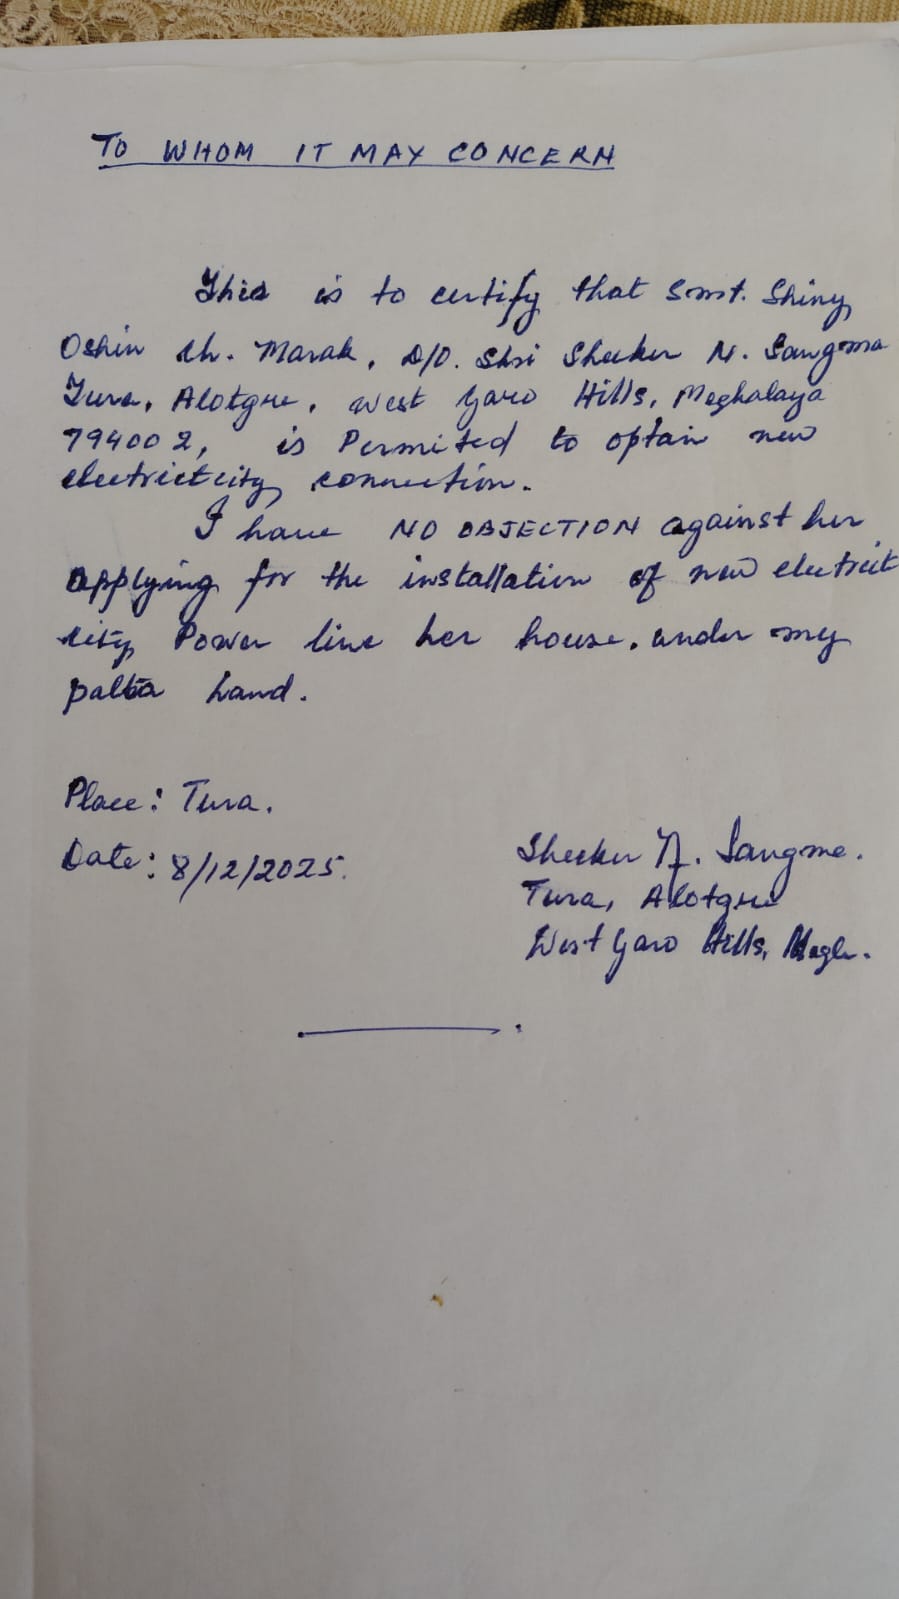 TO WHOM IT MAY CONCERN
This is to certify that Smt. Shiny
Oshin Ch. Marak, D/O. Shri Sheeker N. Sangma
Tura, Alotgre, West Garo Hills, Meghalaya
794002, is Permited to optain new
electrictcity connection.
I have NO OBJECTION against her
applying for the installation of new electrict
city Power line her house. under my
patta land.
Place: Tura.
Date: 8/12/2025.
Sheeker N. Sangma.
Tura, Alotgre
West Garo Hills, Megh.